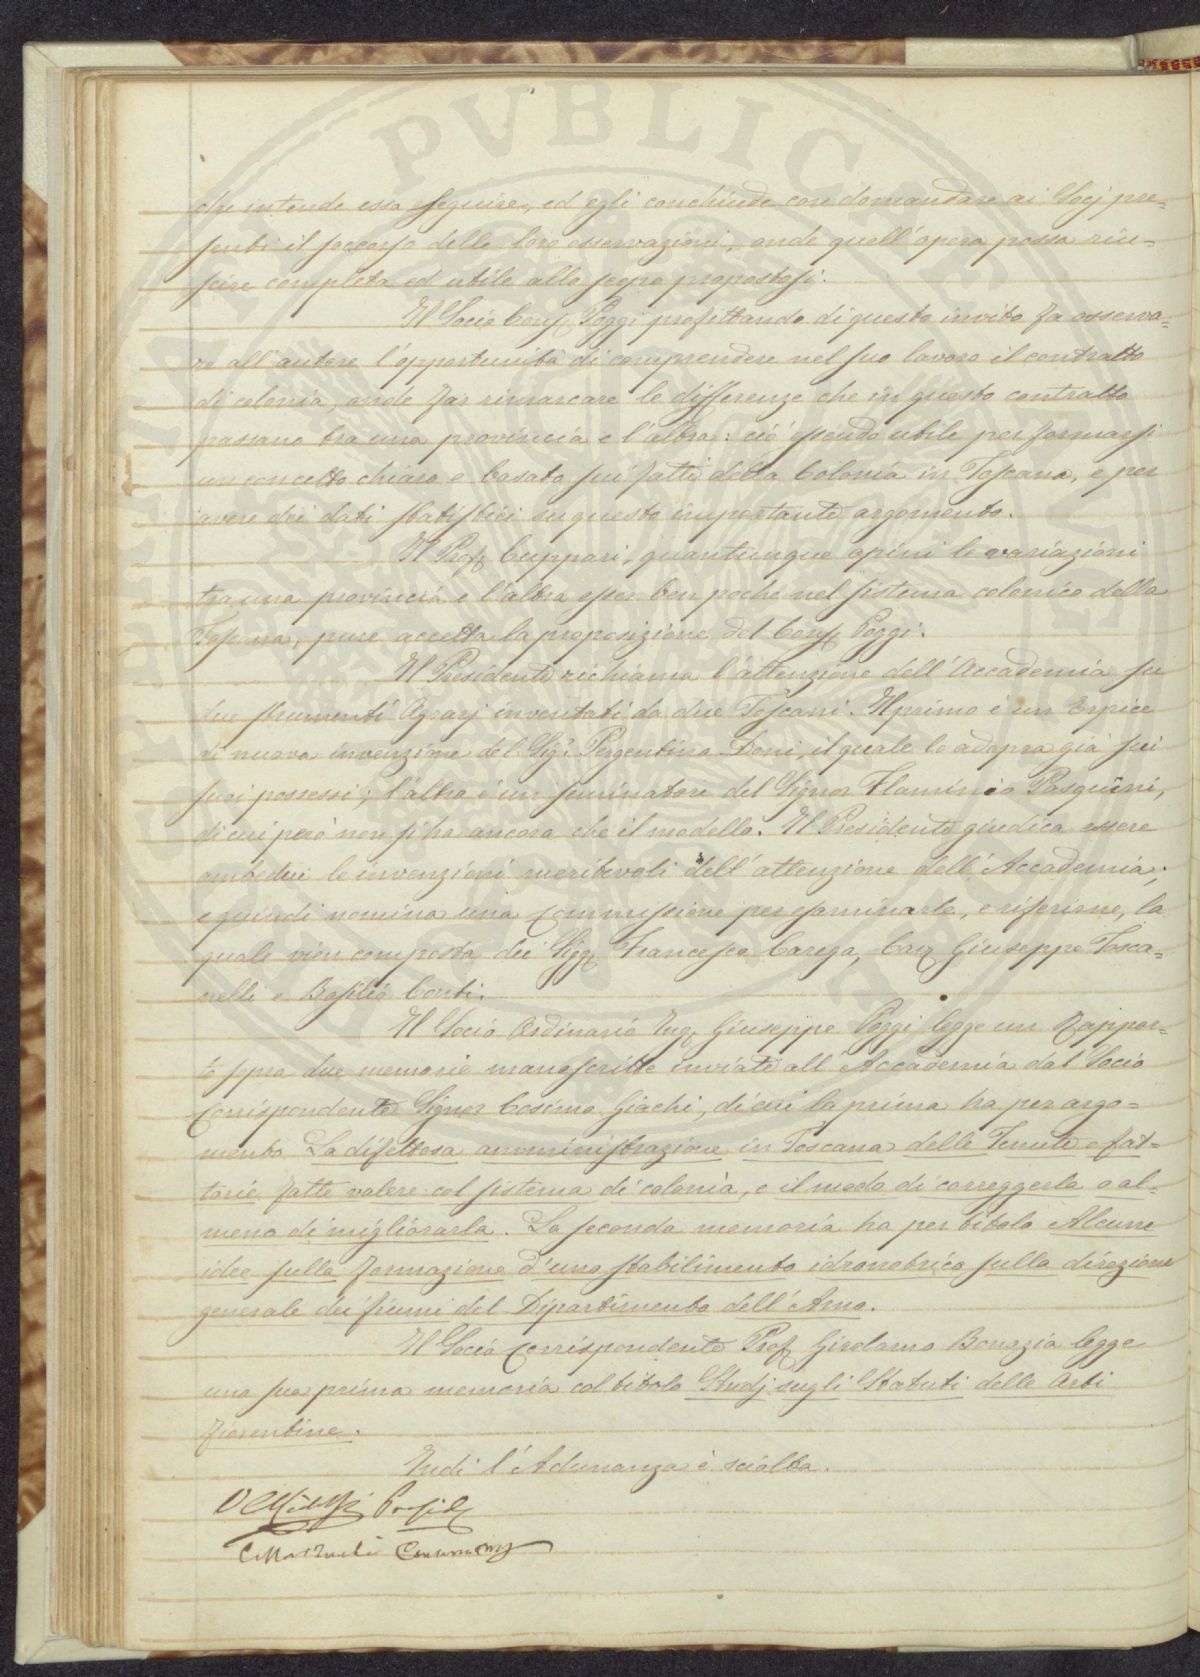 che intende essa seguire, ed egli conchiude con domandare ai Socj pre=
senti il soccorso delle loro osservazioni, onde quell'opera possa riu=
scire completa ed utile allo scopo propostosi.
Il Socio Cons. Poggi profittando di questo invito fa osserva=
re all'autore l'opportunità di comprendere nel suo lavoro il contratto
di colonìa, onde far rimarcare le differenze che in questo contratto
passano tra una provincia e l'altra: ciò essendo utile per formarsi
un concetto chiaro e basato sui fatti della Colonìa in Toscana, e per
avere dei dati statistici su questo importante argomento.
Il Prof. Cuppari, quantunque opini le variazioni
tra una provincia e l'altra esser ben poche nel sistema colonico della
Toscana, pure accetta la proposizione del Cons. Poggi.
Il Presidente richiama l'attenzione dell'Accademia su
due strumenti Agrarj inventati da due Toscani. Il primo è un Erpice
di nuova invenzione del Sig. Pergentino Doni, il quale lo adopra già sui
suoi possessi; l'altro è un seminatore del Signor Flaminio Pasquini,
di cui però non si ha ancora che il modello. Il Presidente giudica essere
ambedue le invenzioni meritevoli dell'attenzione dell'Accademia;
e quindi nomina una Commissione per esaminarle, e riferirne, la
quale vien composta dei Sigg. Francesco Carega, Cav. Giuseppe Tosca=
nelli e Basilio Conti.
Il Socio Ordinario Ing. Giuseppe Poggi legge un Rappor=
to sopra due memorie manoscritte inviate all'Accademia dal Socio
Corrispondente Signor Cosimo Giachi, di cui la prima ha per argo=
mento La difettosa amministrazione in Toscana delle Tenute e fat=
torie fatte valere col sistema di colonìa, e il modo di correggerla o al=
meno di migliorarla. La seconda memoria ha per titolo Alcune
idee sulla formazione d'uno stabilimento idrometrico sulla direzione
generale dei fiumi del Dipartimento dell'Arno.
Il Socio Corrispondente Prof. Girolamo Bonazia legge
una sua prima memoria col titolo Studj sugli Statuti delle Arti
Fiorentine.
Indi l'Adunanza è sciolta.
PVBLICAE